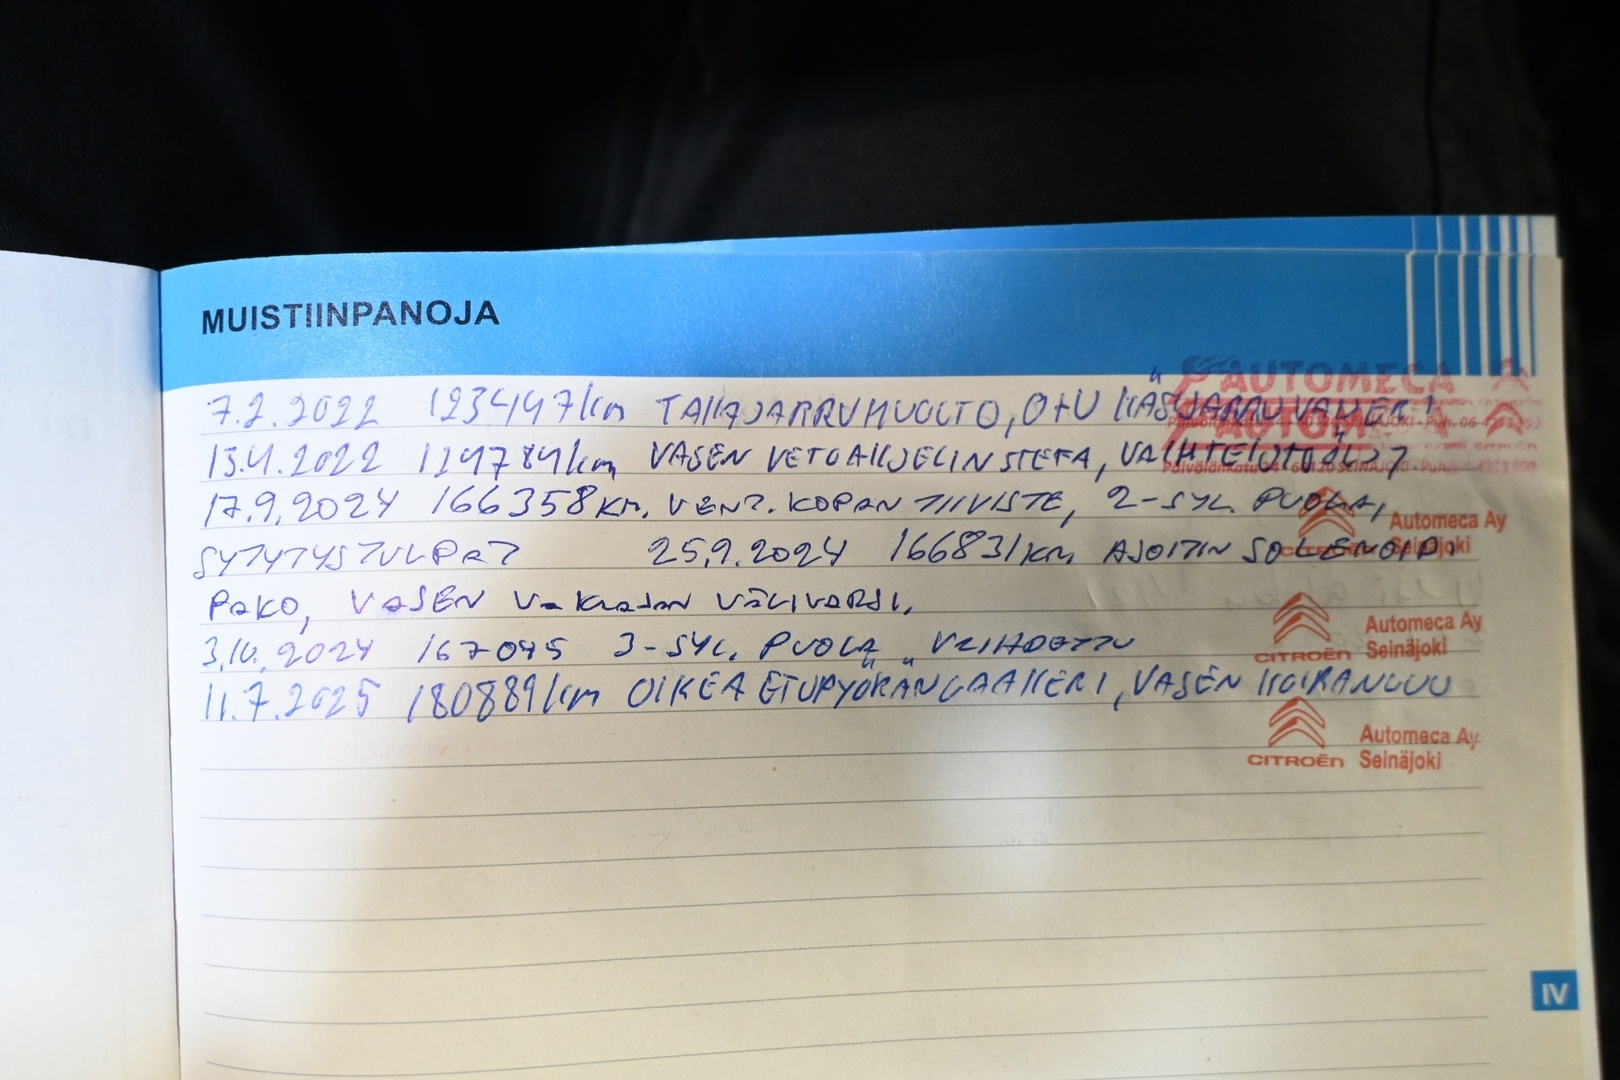 MUISTIINPANOJA
7.2.2022 123447km TAKAJARRUHUOLTO, O+U KÄSIJARRUVAIJERI
13.4.2022 124784km VASEN VETOAKSELIN STEFA, VAIHTEISTOÖLJY
17.9.2024 166358km. VENT. KOPAN TIIVISTE, 2-SYL. PUOLA,
SYTYTYSTULPAT 25.9.2024 166831km AJOITIN SOLENOIDI
PAKO, VASEN VAKAAJAN VÄLIVARSI.
3.10.2024 167045 3-SYL. PUOLA VAIHDETTU
11.7.2025 180889km OIKEA ETUPYÖRÄN LAAKERI, VASEN KOIRANLUU
AUTOMECA
AUTOM
Automeca Ay
CITROËN Seinäjoki
Automeca Ay
CITROËN Seinäjoki
Automeca Ay
CITROËN Seinäjoki
IV